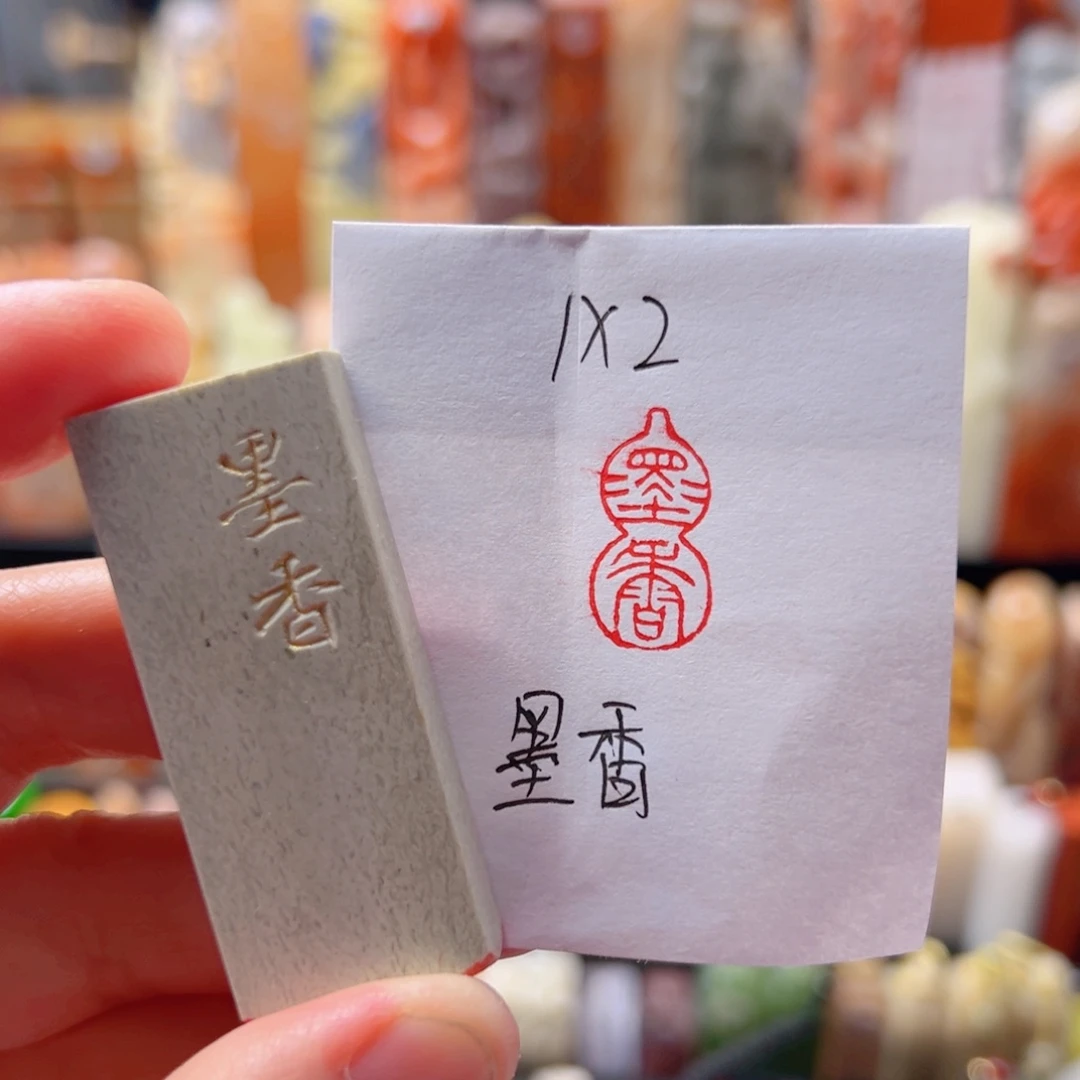 墨
香
1X2
墨
香
墨香